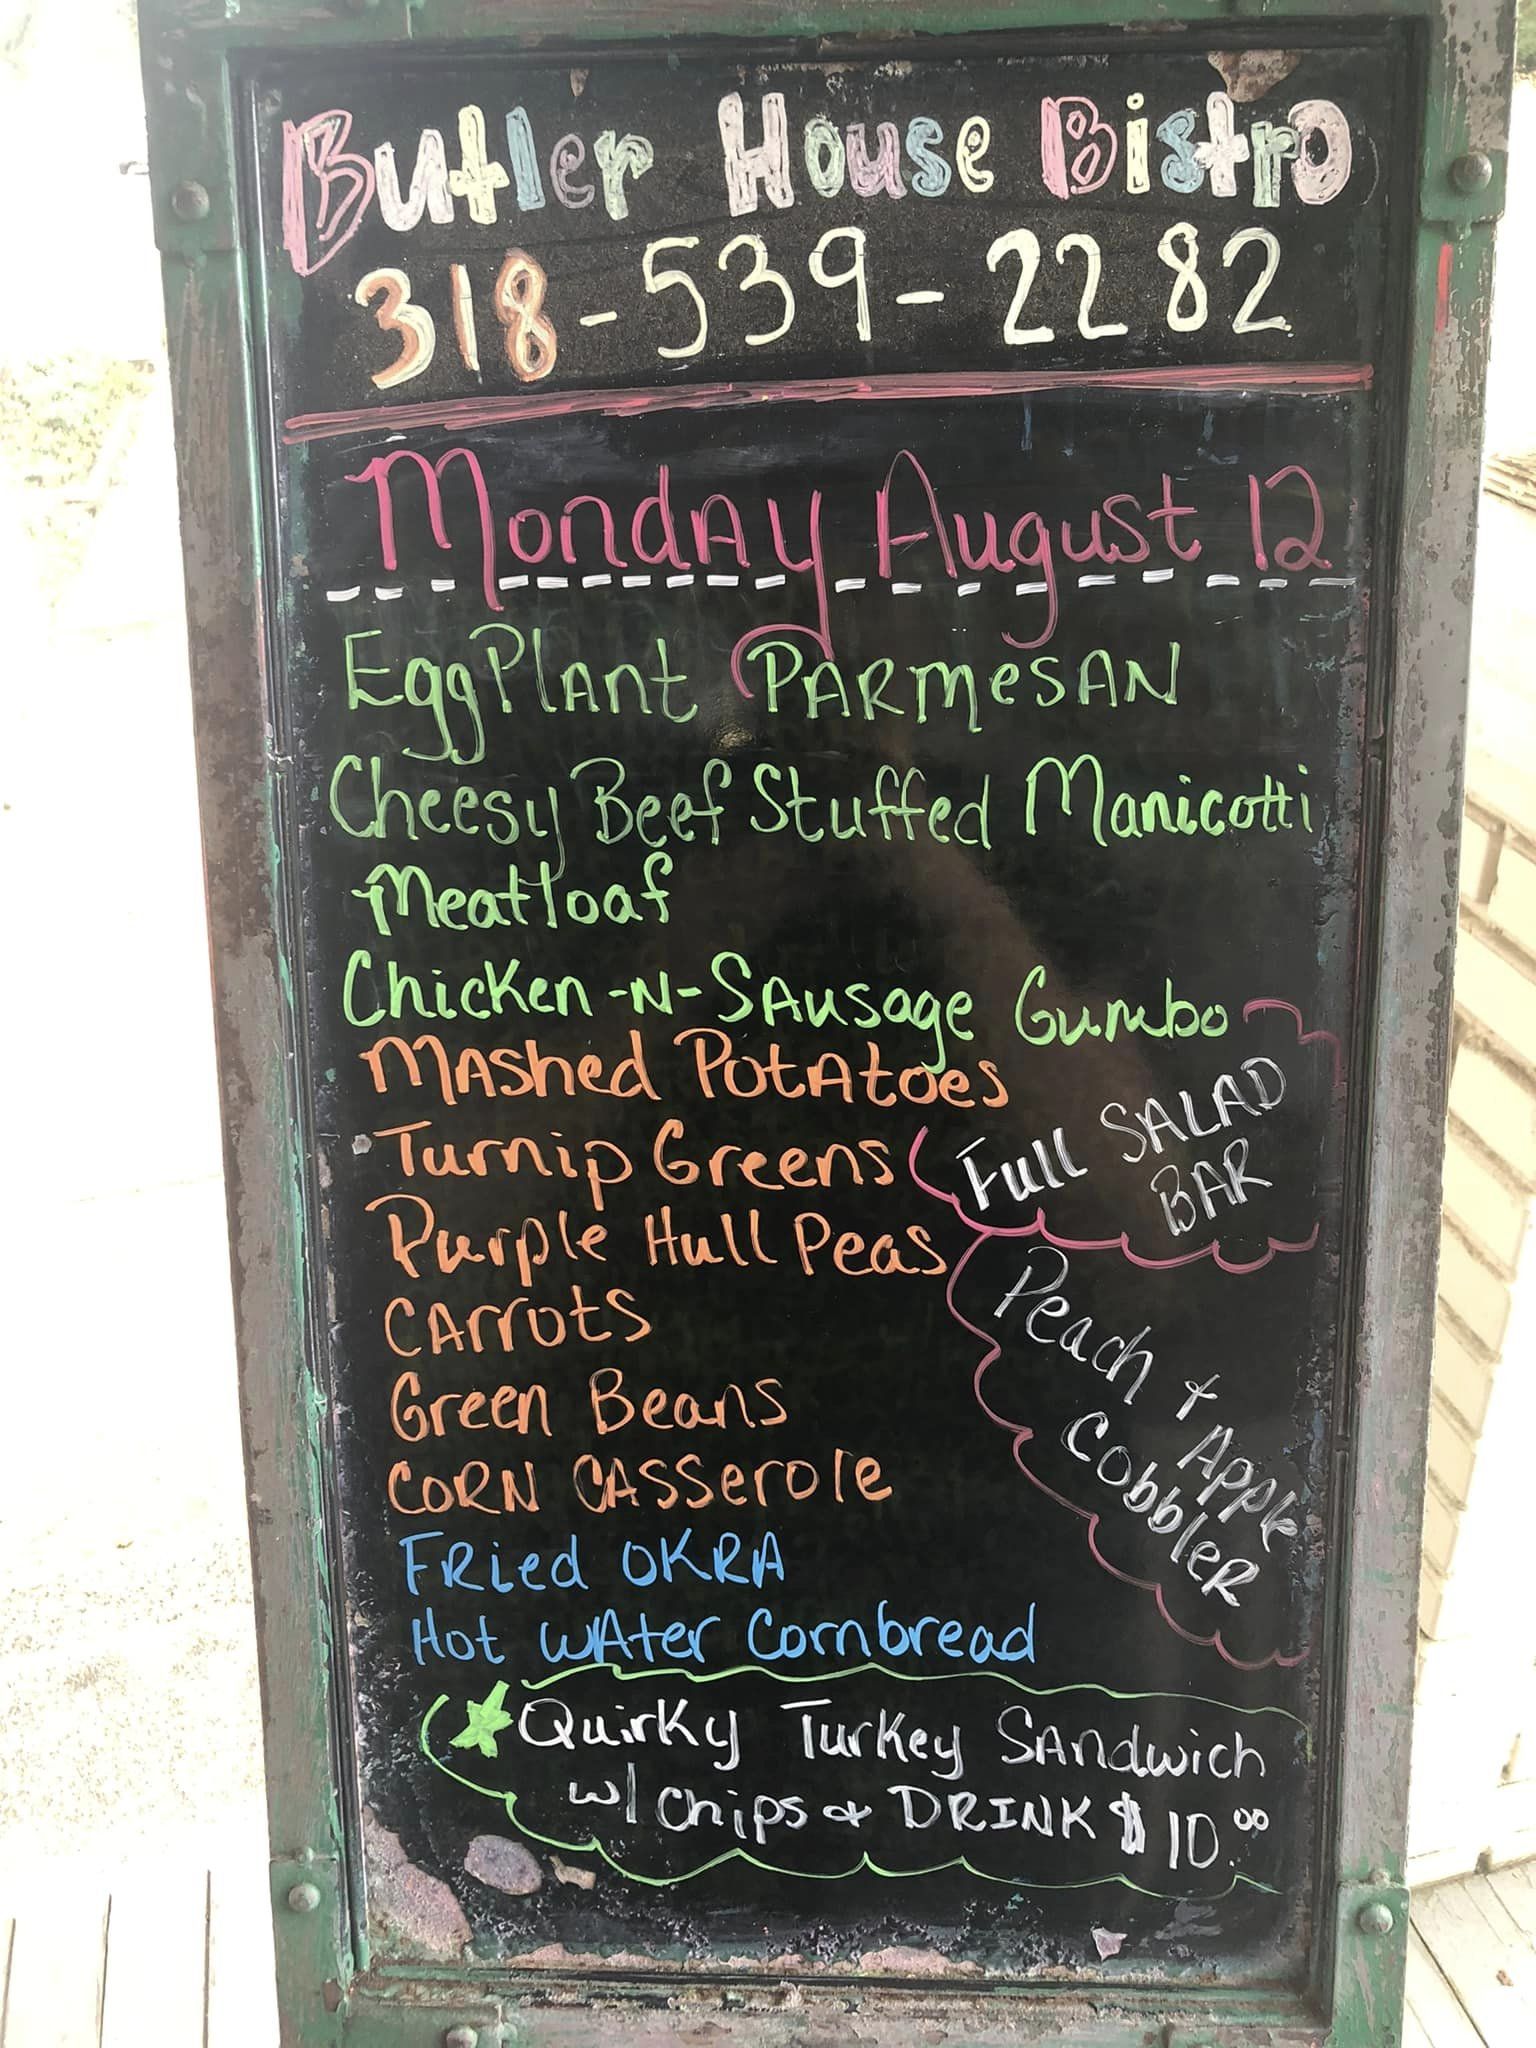 Butler House Bistro
318-539-2282
Monday August 12
EggPlant Parmesan
Cheesy Beef Stuffed Manicotti
Meatloaf
Chicken-N-Sausage Gumbo
Mashed Potatoes
Turnip Greens
Purple Hull Peas
Carrots
Green Beans
Corn Casserole
Fried Okra
Hot Water Cornbread
Full Salad
Bar
Peach + Apple
Cobbler
Quirky Turkey Sandwich
w/ chips & DRINK $10.00